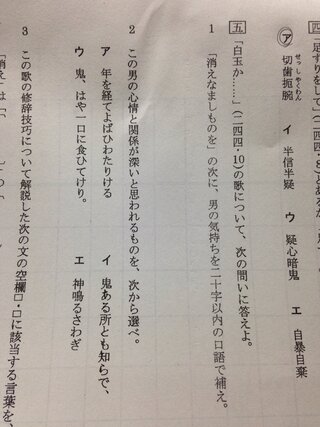 四 足ずりをして」
㋐ 切歯扼腕 イ 半信半疑 ウ 疑心暗鬼 エ 自暴自棄
せっしやくわん
五 「白玉か……」(二四四・10)の歌について、次の問いに答えよ。
1 「消えなましものを」の次に、男の気持ちを二十字以内の口語で補え。
2 この男の心情と関係が深いと思われるものを、次から選べ。
ア 年を経てよばひわたりける イ 鬼ある所とも知らで、
ウ 鬼、はや一口に食ひてけり。 エ 神鳴るさわぎ
3 この歌の修辞技巧について解説した次の文の空欄□・□に該当する言葉を、
「消え」は「